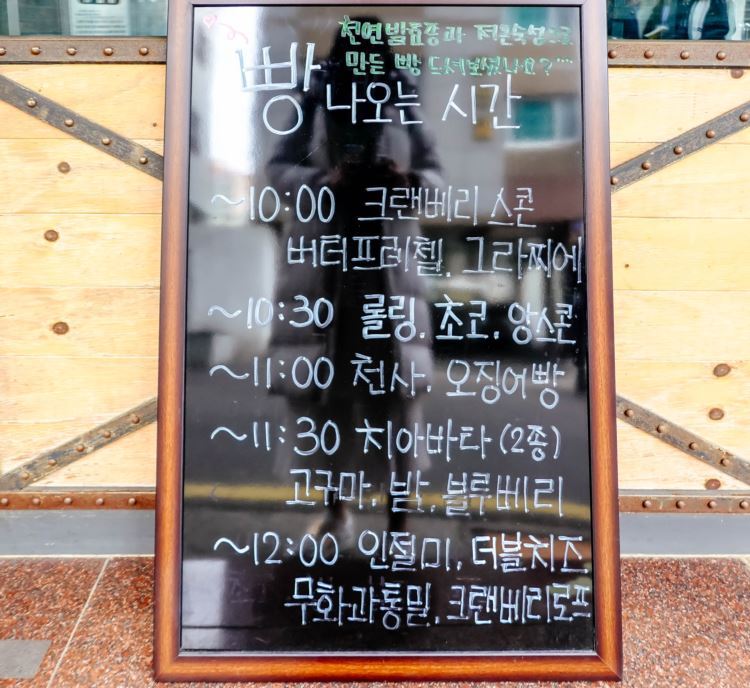 천연발효종과 저온숙성으로
만든 빵 드셔보셨나요?...
빵 나오는 시간
~10:00 크랜베리 스콘
버터프레첼, 그라찌에
~10:30 롤링, 초코, 앙스콘
~11:00 천사, 오징어빵
~11:30 치아바타 (2종)
고구마, 밤, 블루베리
~12:00 인절미, 더블치즈
무화과통밀, 크랜베리로프